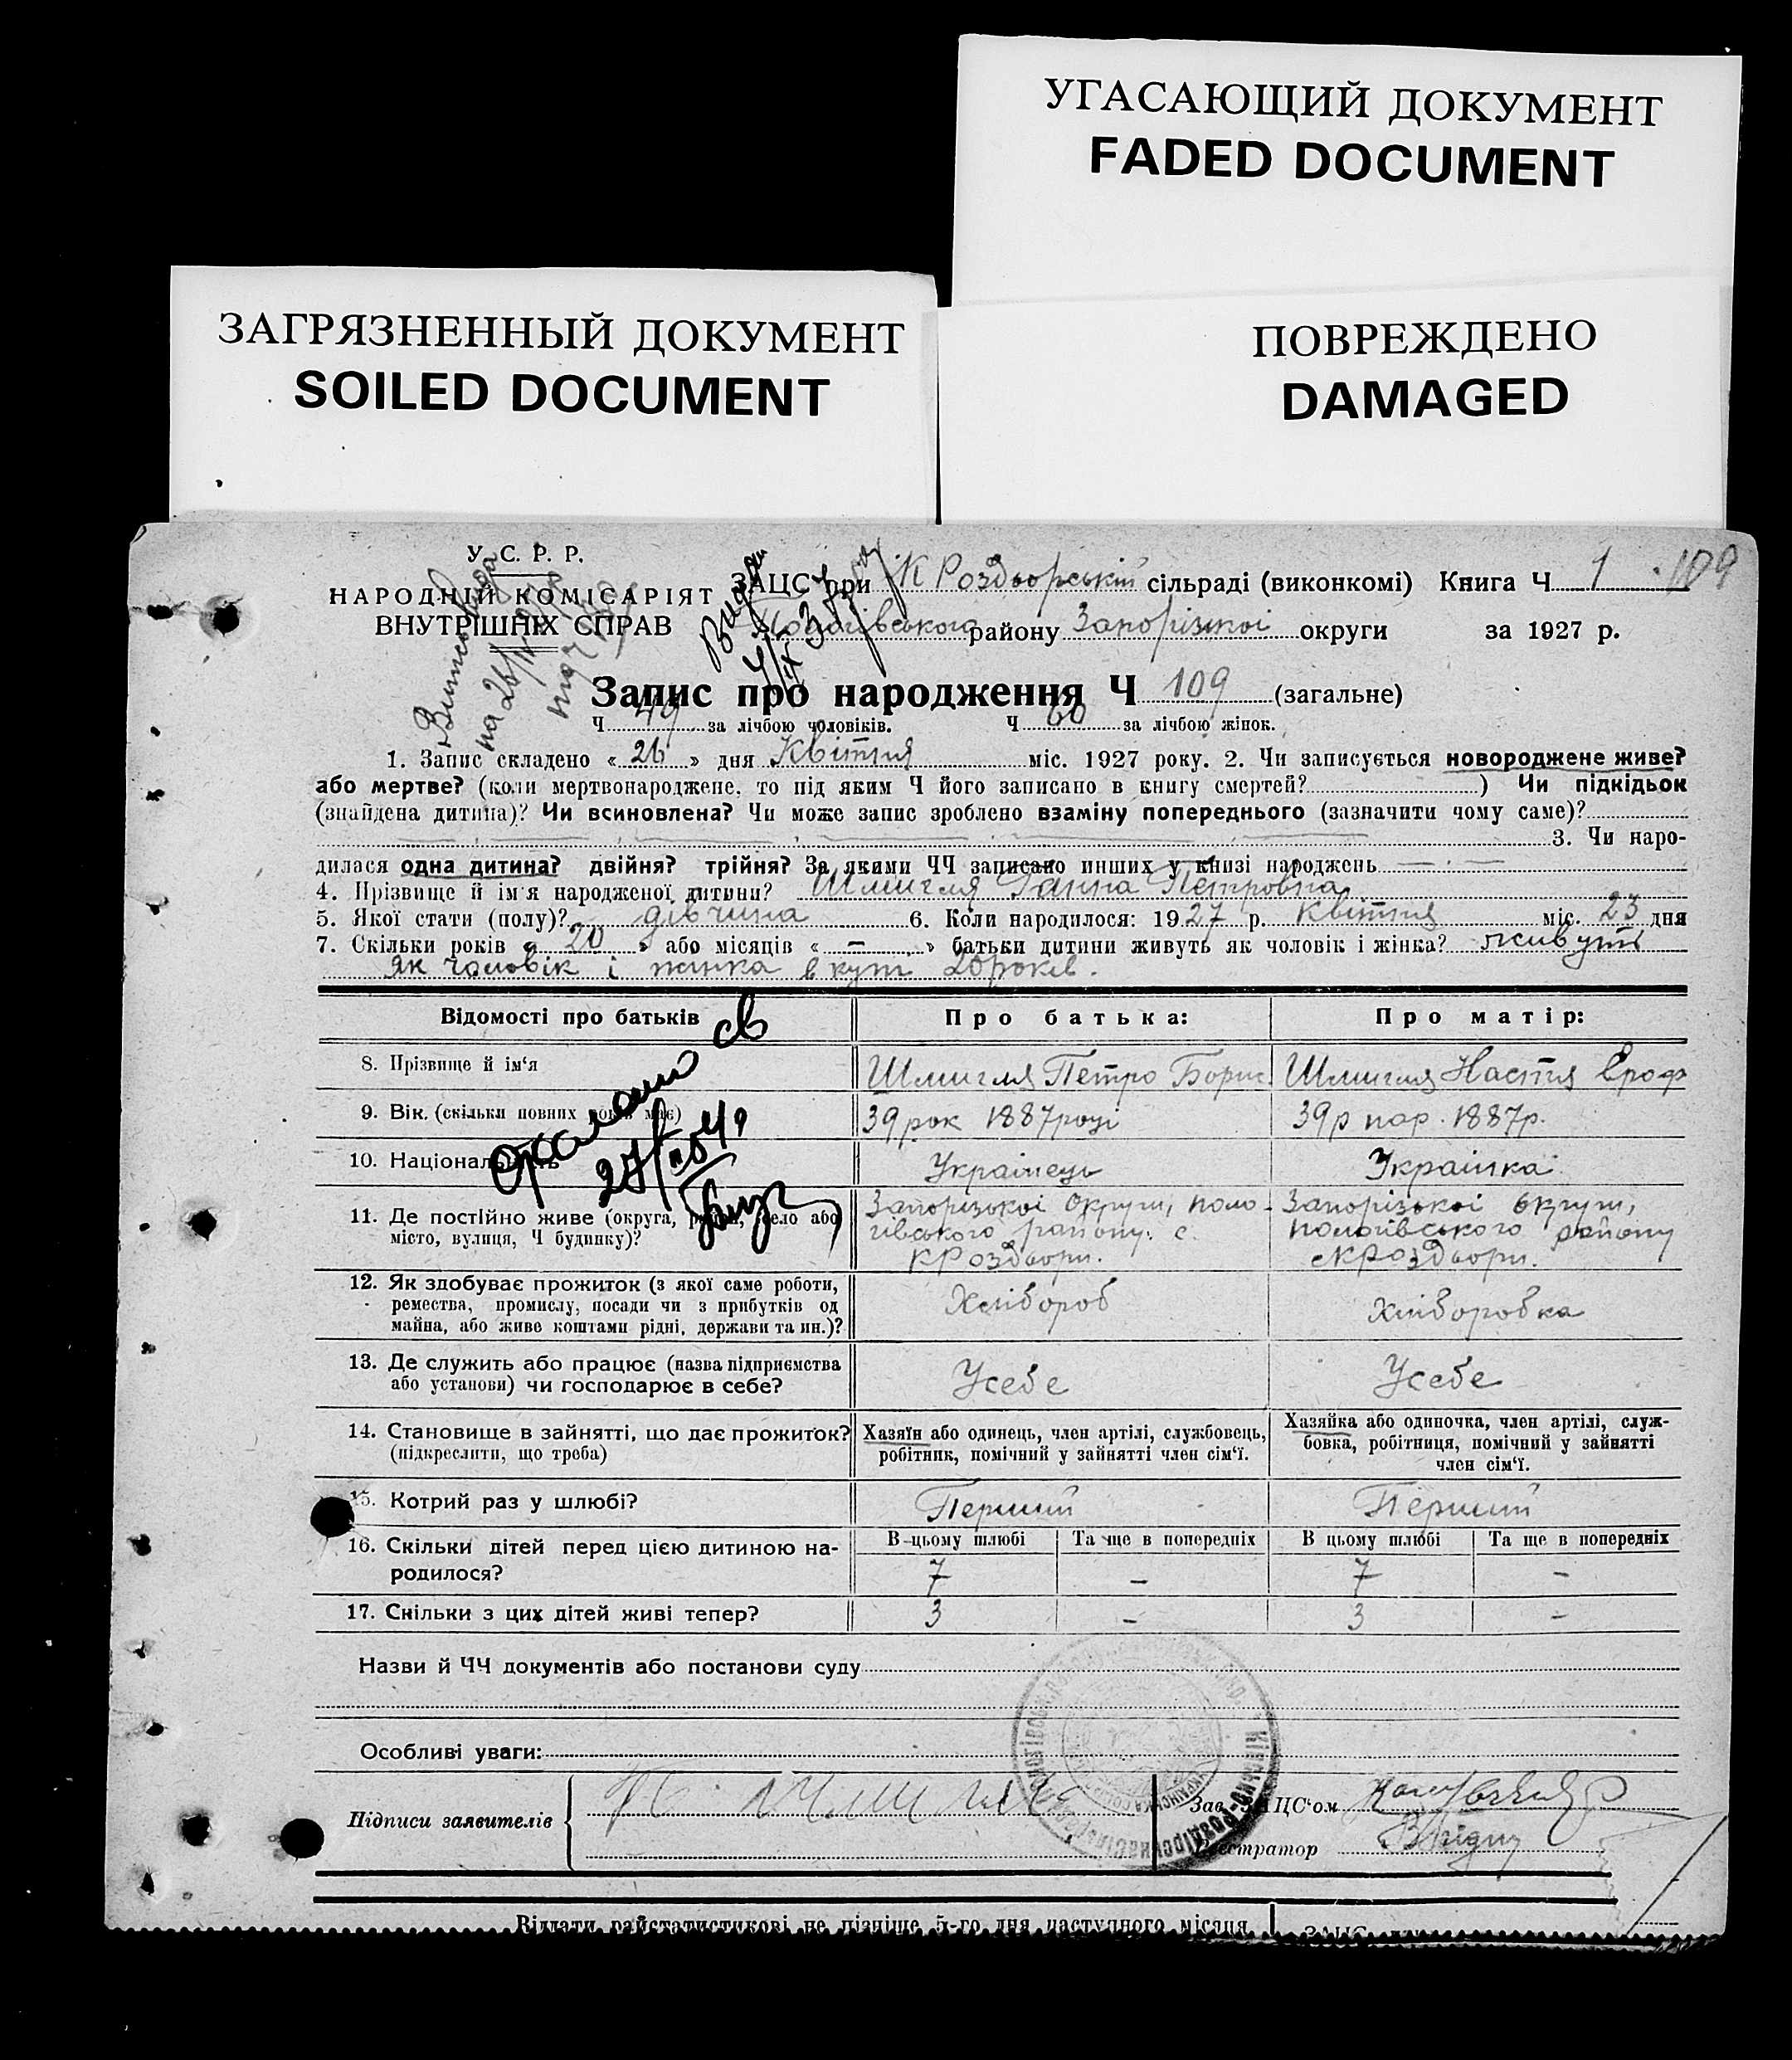 УГАСАЮЩИЙ ДОКУМЕНТ
FADED DOCUMENT
ЗАГРЯЗНЕННЫЙ ДОКУМЕНТ
SOILED DOCUMENT
ПОВРЕЖДЕНО
DAMAGED
У. С. Р. Р.
НАРОДНІЙ КОМІСАРІЯТ
ВНУТРІШНІХ СПРАВ
ЗАЦС при К Роздорській сільраді (виконкомі) Книга Ч 1 109
Пологівського району Запорізкої округи за 1927 р.
Запис про народження Ч 109 (загальне)
Ч 49 за лічбою чоловіків. Ч 60 за лічбою жінок.
1. Запис складено « 26 » дня Квітня міс. 1927 року. 2. Чи записується новороджене живе?
або мертве? (коли мертвонароджене, то під яким Ч його записано в книгу смертей? ) Чи підкідьок
(знайдена дитина)? Чи всиновлена? Чи може запис зроблено взаміну попереднього (зазначити чому саме)?
3. Чи наро-
дилася одна дитина? двійня? трійня? За якими ЧЧ записано инших у книзі народжень — . —
4. Прізвище й ім'я народженої дитини? Шмигля Ганна Петровна
5. Якої стати (полу)? дівчина 6. Коли народилося: 1927 р. Квітня міс. 23 дня
7. Скільки років « 20 » або місяців « — » батьки дитини живуть як чоловік і жінка? живуть
як чоловік і жінка вкупі 20 років.
Відомості про батьків Про батька: Про матір:
8. Прізвище й ім'я Шмигля Петро Борис Шмигля Настя Ероф
9. Вік (скільки повних років має) 39 рок 1887 році 39 р нар. 1887 р.
10. Національність Українець Українка
11. Де постійно живе (округа, район, село або
місто, вулиця, Ч будинку)?
Запорізької Округи, поло-
гівського району. с.
К Роздори.
Запорізької округи,
пологівського району
с К Роздори.
12. Як здобуває прожиток (з якої саме роботи,
ремества, промислу, посади чи з прибутків од
майна, або живе коштами рідні, держави та ин.)?
Хлібороб Хліборобка
13. Де служить або працює (назва підприємства
або установи) чи господарює в себе?
Усебе Усебе
14. Становище в зайнятті, що дає прожиток?
(підкреслити, що треба)
Хазяїн або одинець, член артілі, службовець,
робітник, помічний у зайнятті член сім'ї.
Хазяйка або одиночка, член артілі, служ-
бовка, робітниця, помічний у зайнятті
член сім'ї.
15. Котрий раз у шлюбі? Перший Перший
16. Скільки дітей перед цією дитиною на-
родилося?
В цьому шлюбі Та ще в попередніх В цьому шлюбі Та ще в попередніх
7 – 7 –
17. Скільки з цих дітей живі тепер? 3 – 3 –
Назви й ЧЧ документів або постанови суду
Особливі уваги:
Підписи заявителів
Зав. ЗАЦС'ом
Реєстратор
Віддати райстатистикові не пізніше 5-го дня наступного місяця